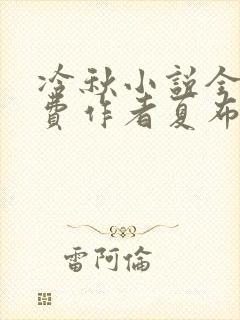 冷秋小説全
費作者夏布
雷阿倫